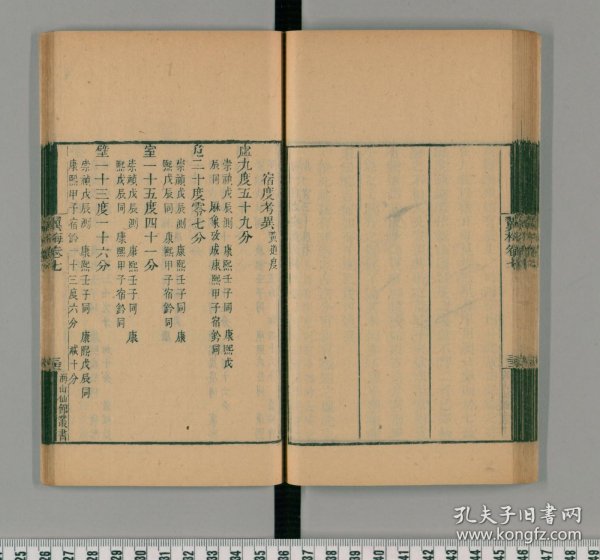 宿度考異黃道度
虛九度五十九分
崇禎戊辰測 康熙壬子同 康熙戊
辰同 曆象攷成 康熙甲子宿鈐同
危二十度零七分
崇禎戊辰測 康熙壬子同 康
熙戊辰同 康熙甲子宿鈐同
室一十五度四十一分
崇禎戊辰測 康熙壬子同 康
熙戊辰同 康熙甲子宿鈐同
壁一十三度一十六分
崇禎戊辰測 康熙壬子同 康熙戊辰同
康熙甲子宿鈐一十三度六分 減十分
翼梅卷七
海山仙館叢書
孔夫子旧书网
www.kongfz.com
25 26 27 28 29 30 31 32 33 34 35 36 37 38 39 40 41 42 43 44 45 46 47 48 49